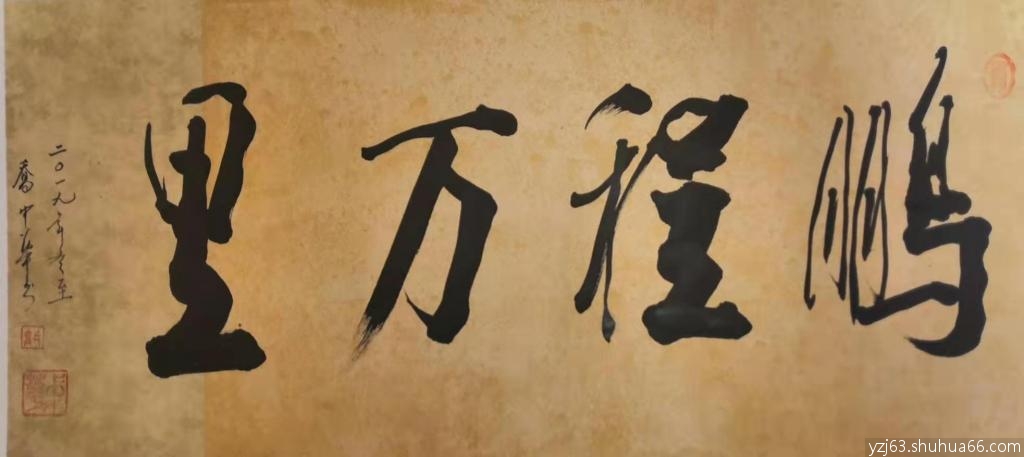 鹏程万里
二〇一九年冬至
喬中華书
yzj63.shuhua66.com